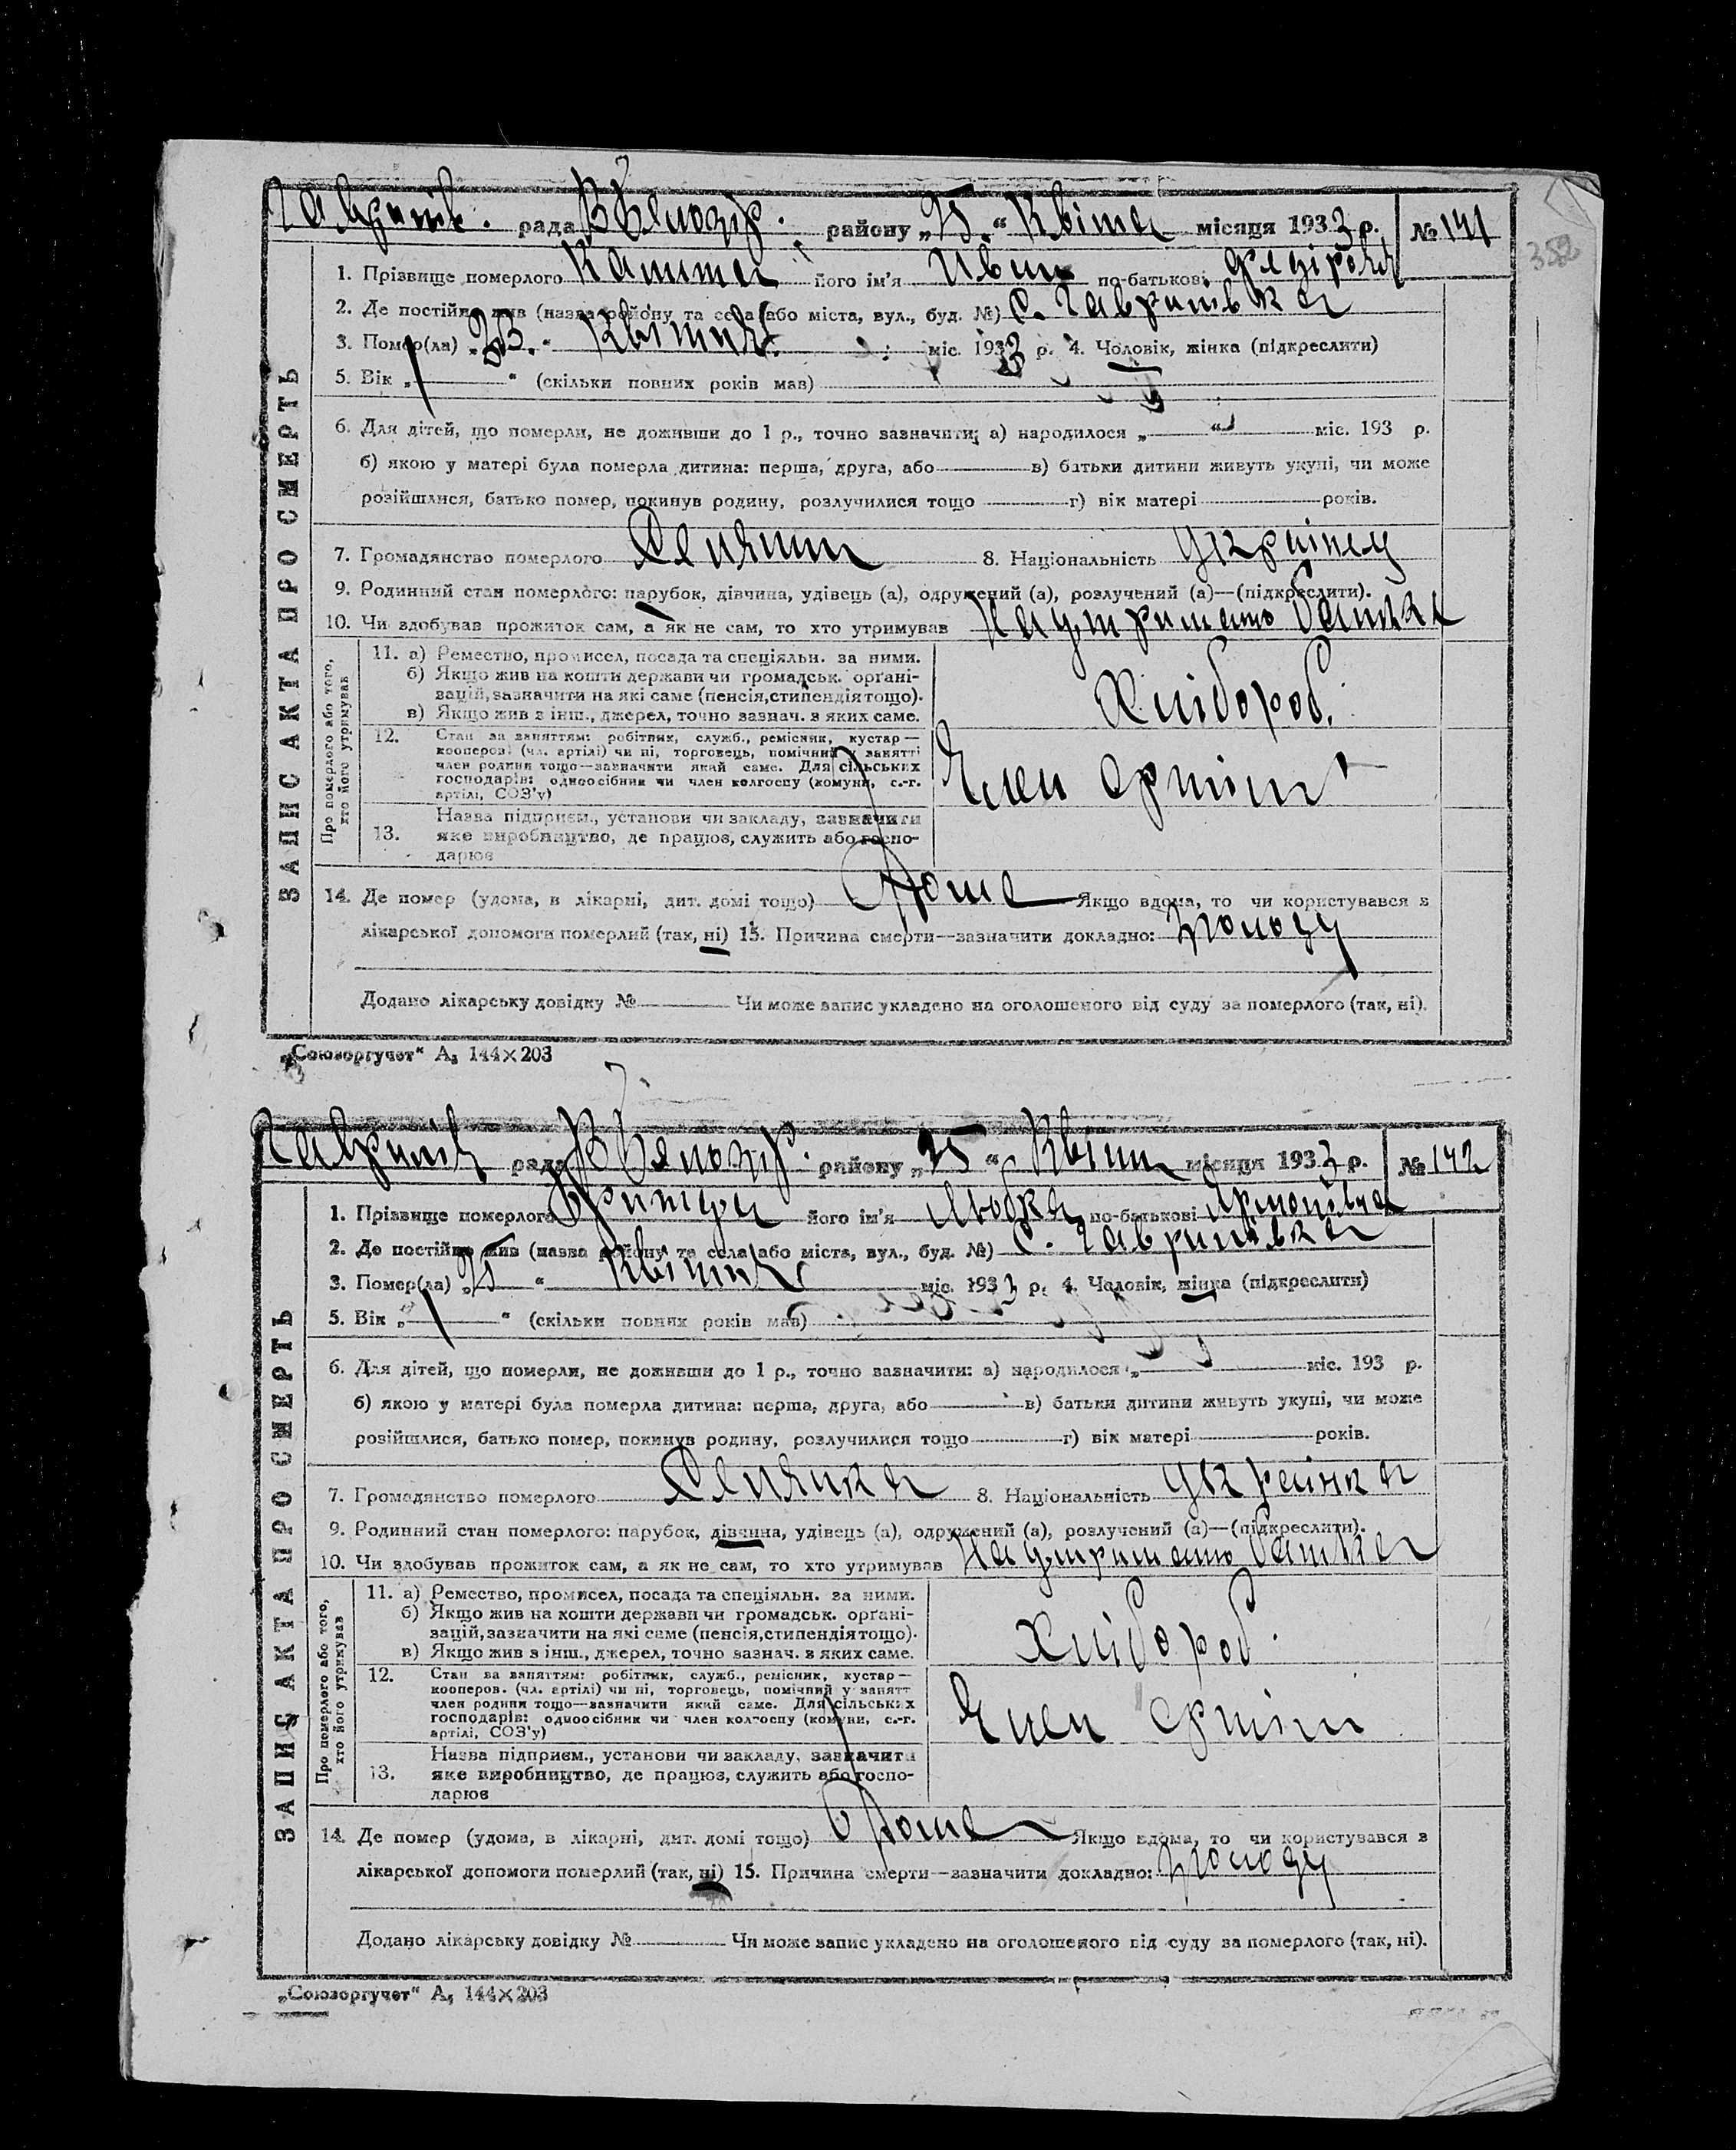 Гаврилів. рада В Белозір. району „25.“ Квітня місяця 1933 р. № 141
352
ЗАПИС АКТА ПРО СМЕРТЬ
1. Прізвище померлого його ім'я Іван по-батькові
2. Де постійно жив (назва району та села або міста, вул., буд. №) С. Гаврилівка
3. Помер(ла) „23.“ Квітня міс. 1933 р. 4. Чоловік, жінка (підкреслити)
5. Вік „ “ (скільки повних років мав)
6. Для дітей, що померли, не доживши до 1 р., точно зазначити: а) народилося „ “ міс. 193 р.
б) якою у матері була померла дитина: перша, друга, або в) батьки дитини живуть укупі, чи може
розійшлися, батько помер, покинув родину, розлучилися тощо г) вік матері років.
7. Громадянство померлого Селянин 8. Національність Українец
9. Родинний стан померлого: парубок, дівчина, удівець (а), одружений (а), розлучений (а)—(підкреслити).
10. Чи здобував прожиток сам, а як не сам, то хто утримував На утриманю батька
Про померлого або того, хто його утримував
11. а) Ремество, промисел, посада та спеціяльн. за ними.
б) Якщо жив на кошти держави чи громадськ. орґані-
зацій, зазначити на які саме (пенсія, стипендія тощо).
в) Якщо жив з інш., джерел, точно зазнач. з яких саме.
Хлібороб.
12. Стан за заняттям: робітник, служб., ремісник, кустар—
кооперов. (чл. артілі) чи ні, торговець, помічний у занятті
член родини тощо—зазначити який саме. Для сільських
господарів: одноосібник чи член колгоспу (комуни, с.-г.
артілі, СОЗ'у)
Член артіли
13. Назва підприєм., установи чи закладу, зазначити
яке виробництво, де працює, служить або госпо-
дарює
14. Де помер (удома, в лікарні, дит. домі тощо) Дома Якщо вдома, то чи користувався з
лікарської допомоги померлий (так, ні) 15. Причина смерти—зазначити докладно: з голоду
Додано лікарську довідку № Чи може запис укладено на оголошеного від суду за померлого (так, ні).
„Союзоргучет“ А₅ 144×203
Гаврилів рада В Белозір. району „25“ Квітня місяця 1933 р. № 142
ЗАПИС АКТА ПРО СМЕРТЬ
1. Прізвище померлого його ім'я Любка по-батькові
2. Де постійно жив (назва району та села або міста, вул., буд. №) С. Гаврилівка
3. Помер(ла) „25“ Квітня міс. 1933 р. 4. Чоловік, жінка (підкреслити)
5. Вік „ “ (скільки повних років мав)
6. Для дітей, що померли, не доживши до 1 р., точно зазначити: а) народилося „ міс. 193 р.
б) якою у матері була померла дитина: перша, друга, або в) батьки дитини живуть укупі, чи може
розійшлися, батько помер, покинув родину, розлучилися тощо г) вік матері років.
7. Громадянство померлого Селянка 8. Національність Українка
9. Родинний стан померлого: парубок, дівчина, удівець (а), одружений (а), розлучений (а)—(підкреслити).
10. Чи здобував прожиток сам, а як не сам, то хто утримував На утриманю батька
Про померлого або того, хто його утримував
11. а) Ремество, промисел, посада та спеціяльн. за ними.
б) Якщо жив на кошти держави чи громадськ. орґані-
зацій, зазначити на які саме (пенсія, стипендія тощо).
в) Якщо жив з інш., джерел, точно зазнач. з яких саме.
Хлібороб.
12. Стан за заняттям: робітник, служб., ремісник, кустар—
кооперов. (чл. артілі) чи ні, торговець, помічний у занятт
член родини тощо—зазначити який саме. Для сільських
господарів: одноосібник чи член колгоспу (комуни, с.-г.
артілі, СОЗ'у)
Член артіли
13. Назва підприєм., установи чи закладу, зазначити
яке виробництво, де працює, служить або госпо-
дарює
14. Де помер (удома, в лікарні, дит. домі тощо) Дома Якщо вдома, то чи користувався з
лікарської допомоги померлий (так, ні) 15. Причина смерти—зазначити докладно: з голоду
Додано лікарську довідку № Чи може запис укладено на оголошеного від суду за померлого (так, ні).
„Союзоргучет“ А₅ 144×203